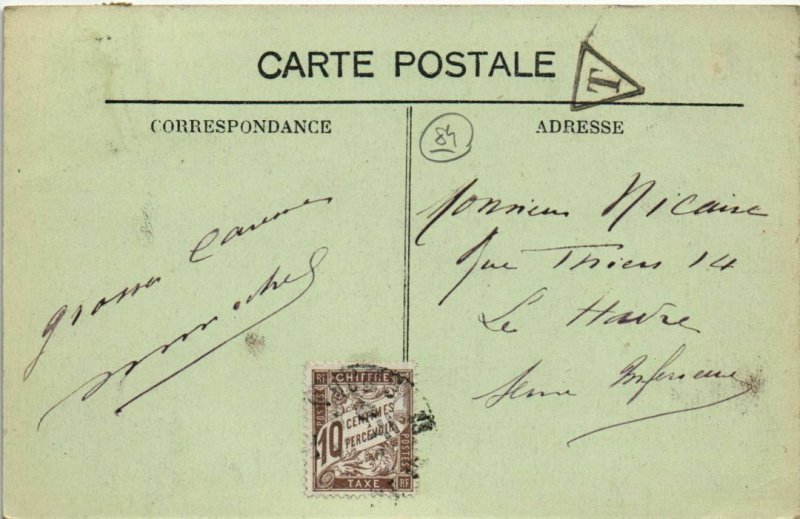 CARTE POSTALE
T
CORRESPONDANCE
ADRESSE
84
Monsieur Nicaise
Rue Thiers 14
Le Havre
Seine Inferieure
RF CHIFFRE
POSTES
10 CENTIMES
À
PERCEVOIR
POSTES
TAXE RF